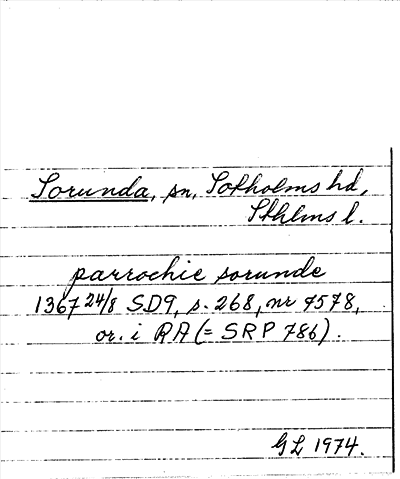 Sorunda, sn, Sotholms hd,
Sthlms l.
parrochie sorunde
1367 24/8 SD9, s. 268, nr 7578,
or. i RA (= SRP 786).
GL 1974.